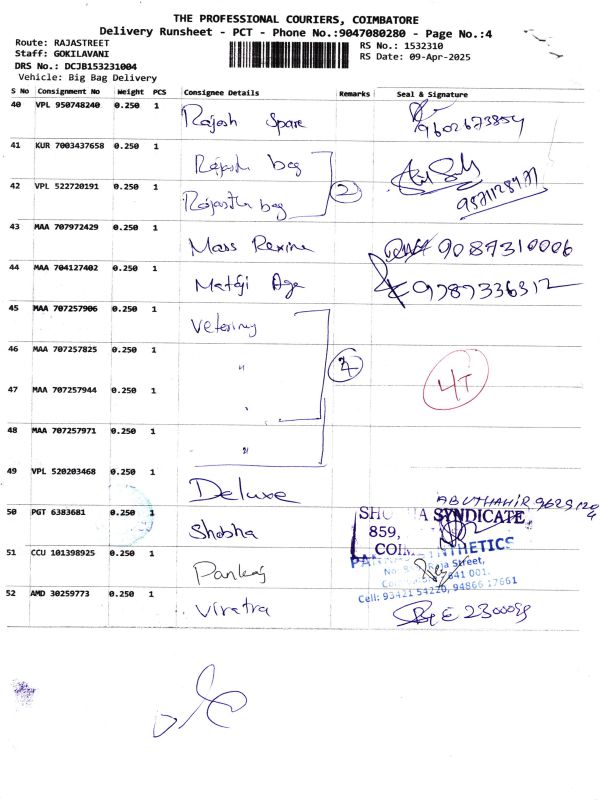 THE PROFESSIONAL COURIERS, COIMBATORE
Delivery Runsheet - PCT - Phone No.:9047080280 - Page No.:4
Route: RAJASTREET
Staff: GOKILAVANI
DRS No.: DCJB153231004
Vehicle: Big Bag Delivery
RS No.: 1532310
RS Date: 09-Apr-2025
S No Consignment No Weight PCS Consignee Details Remarks Seal & Signature
40 VPL 950748240 0.250 1 Rajesh Spare 9602673854
41 KUR 7003437658 0.250 1 bag
42 VPL 522720191 0.250 1 bag 2
43 MAA 707972429 0.250 1 Mass Rexine 9087310006
44 MAA 704127402 0.250 1 Mataji 9787336312
45 MAA 707257906 0.250 1
46 MAA 707257825 0.250 1 "
47 MAA 707257944 0.250 1 "
48 MAA 707257971 0.250 1 "
49 VPL 520203468 0.250 1 Deluxe
ABUTHAHIR
50 PGT 6383681 0.250 1 Shobha SYNDICATE
859,
51 CCU 101398925 0.250 1 Pankaj
Raja Street,
641 001.
Cell: 93421 54220, 94866 17661
52 AMD 30259773 0.250 1 Viratra